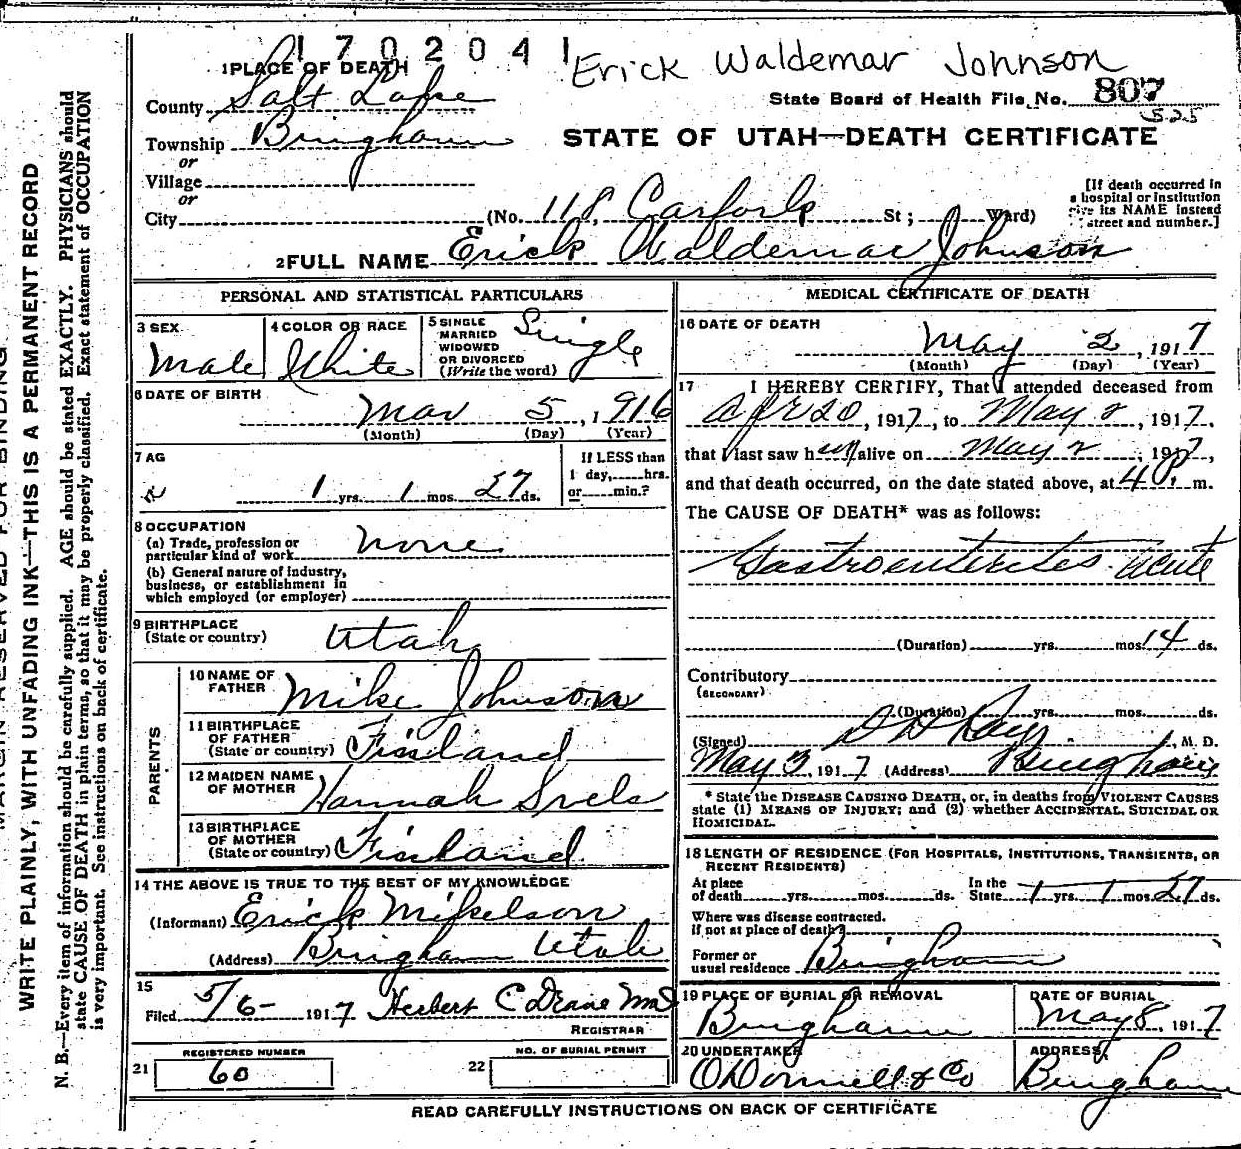 170204 1
Erick Waldemar Johnson
1 PLACE OF DEATH
County Salt Lake
State Board of Health File No. 807
525
Township Bingham
STATE OF UTAH—DEATH CERTIFICATE
or
Village
or
City (No. 118, Carfork St; Ward)
[If death occurred in
a hospital or institution
give its NAME instead
street and number.]
2 FULL NAME Erick Waldemar Johnson
PERSONAL AND STATISTICAL PARTICULARS
3 SEX
Male
4 COLOR OR RACE
White
5 SINGLE
MARRIED
WIDOWED
OR DIVORCED
(Write the word)
Single
6 DATE OF BIRTH
Mar 5, 1916
(Month) (Day) (Year)
7 AG
1 yrs. 1 mos. 27 ds.
If LESS than
1 day, hrs.
or min.?
8 OCCUPATION
(a) Trade, profession or
particular kind of work none
(b) General nature of industry,
business, or establishment in
which employed (or employer)
9 BIRTHPLACE
(State or country) Utah
PARENTS
10 NAME OF
FATHER Mike Johnson
11 BIRTHPLACE
OF FATHER
(State or country) Finland
12 MAIDEN NAME
OF MOTHER Hannah
13 BIRTHPLACE
OF MOTHER
(State or country) Finland
14 THE ABOVE IS TRUE TO THE BEST OF MY KNOWLEDGE
(Informant) Erick Mikelson
(Address) Bingham Utah
15
Filed 5/6- 1917 Herbert C Deane MD
REGISTRAR
REGISTERED NUMBER
21 60
NO. OF BURIAL PERMIT
22
MEDICAL CERTIFICATE OF DEATH
16 DATE OF DEATH
May 2, 1917
(Month) (Day) (Year)
17 I HEREBY CERTIFY, That I attended deceased from
Apr 20, 1917, to May 2, 1917,
that I last saw him alive on May 2, 1917,
and that death occurred, on the date stated above, at 4 P. m.
The CAUSE OF DEATH* was as follows:
Gastroenterites acute
(Duration) yrs. mos. 14 ds.
Contributory
(SECONDARY)
(Duration) yrs. mos. ds.
(Signed) Ray, M. D.
May 3, 1917 (Address) Bingham
* State the DISEASE CAUSING DEATH, or, in deaths from VIOLENT CAUSES
state (1) MEANS OF INJURY; and (2) whether ACCIDENTAL, SUICIDAL OR
HOMICIDAL.
18 LENGTH OF RESIDENCE (FOR HOSPITALS, INSTITUTIONS, TRANSIENTS, OR
RECENT RESIDENTS)
At place
of death yrs. mos. ds.
In the
State 1 yrs. 1 mos. 27 ds.
Where was disease contracted.
if not at place of death?
Former or
usual residence Bingham
19 PLACE OF BURIAL OR REMOVAL
Bingham
DATE OF BURIAL
May 8, 1917
20 UNDERTAKER
ODonnell & Co
ADDRESS
Bingham
READ CAREFULLY INSTRUCTIONS ON BACK OF CERTIFICATE
MARGIN RESERVED FOR BINDING
WRITE PLAINLY, WITH UNFADING INK—THIS IS A PERMANENT RECORD
N. B.—Every item of information should be carefully supplied. AGE should be stated EXACTLY. PHYSICIANS should
state CAUSE OF DEATH in plain terms, so that it may be properly classified. Exact statement of OCCUPATION
is very important. See instructions on back of certificate.